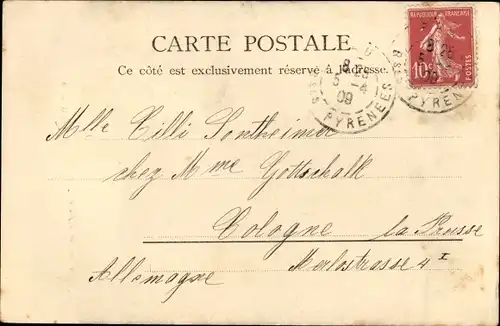 CARTE POSTALE
Ce côté est exclusivement réservé à l'adresse.
REPUBLIQUE FRANÇAISE
10c
POSTES
8 25
5 - 4
09
BSES PYRENEES
PYREN
Mlle Cilli Sontheimer
chez Mme Gottschalk
Cologne la Prusse
Merlostrasse 4 I
Allemagne